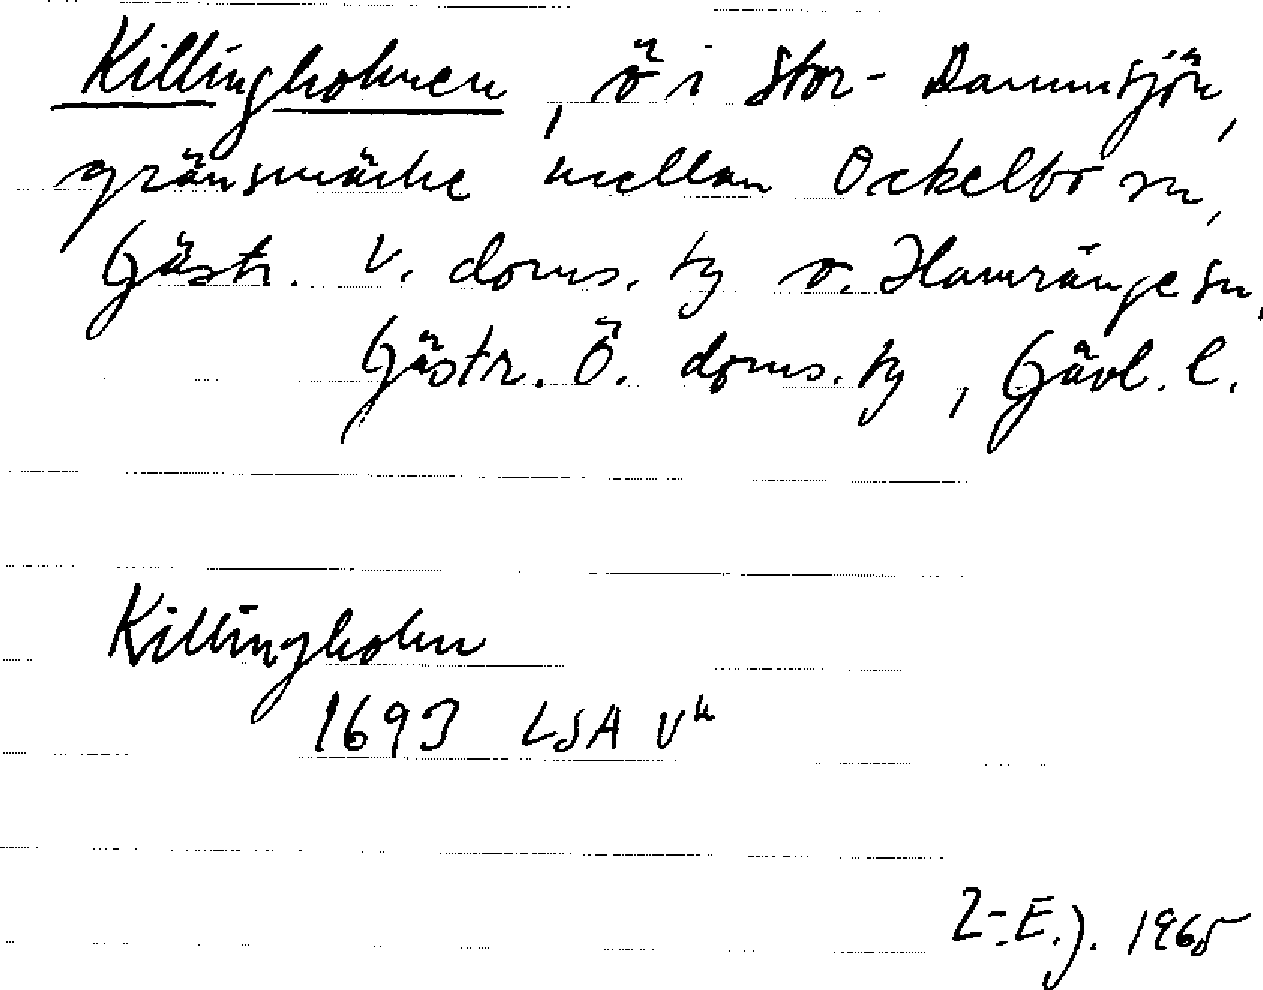 Killingholmen, ö i Stor-Dammsjön,
gränsmärke mellan Ockelbo sn,
Gästr. V. doms. tg o. Hamrånge sn,
Gästr. Ö. doms. tg, Gävl. l.
Killingholm
1693 LSA V
L-E. J. 1965